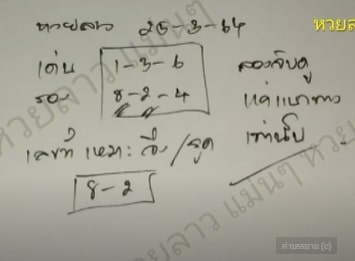 หวยลาว 25-3-64
หวยล
เด่น 1-3-6
รอง 8-2-4
ลองจับดู
แค่แนวทาง
เท่านั้น
เลขที่เหมาะ วิ่ง/รูด
8-2
หวยลาว แม่นๆ หวย
หวยลาว แม่นๆ
คำบรรยาย (c)